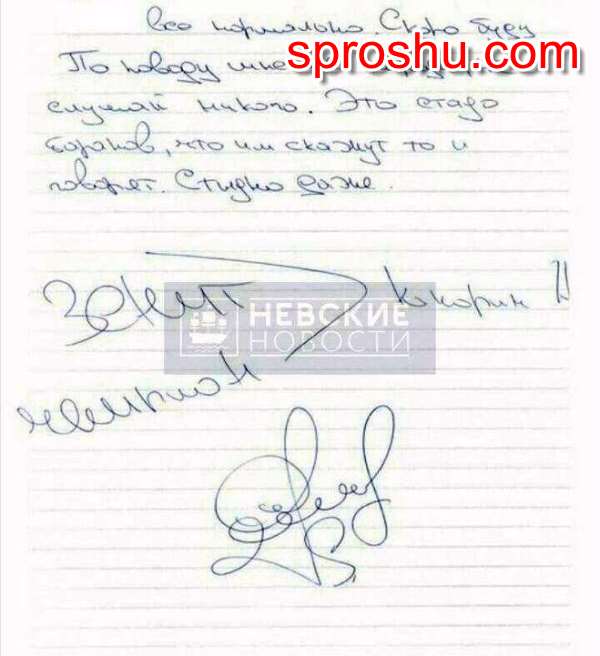 все нормально. Скоро буду
sproshu.com
По поводу мне
слушай никого. Это стадо
баранов, что им скажут то и
говорят. Стыдно даже.
Зенит
Кокорин
НЕВСКИЕ
НОВОСТИ
чемпион